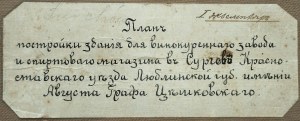 Планъ
постройки зданія для винокуреннаго завода
и спиртоваго магазина въ Сурговѣ Красно-
ставскаго уѣзда Люблинской губ. имѣніи
Августа Графа Цѣшковскаго.